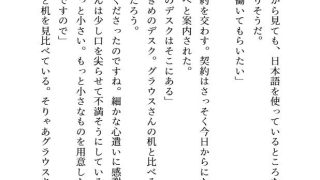 から見ても、日本語を使っているところな
りそうだ。
働いてもらいたい」
約を交わす。契約はさっそく今日からにな
へと案内された。
のデスクはそこにある」
きめのデスク。グラウスさんの机と比べる
だろう。
くださったのですね。細かな心遣いに感激
んは少し口を尖らせて不満そうにしている
っと小さい。もっと小さなものを用意した
ですので」
と机を見比べている。そりゃあグラウスさ